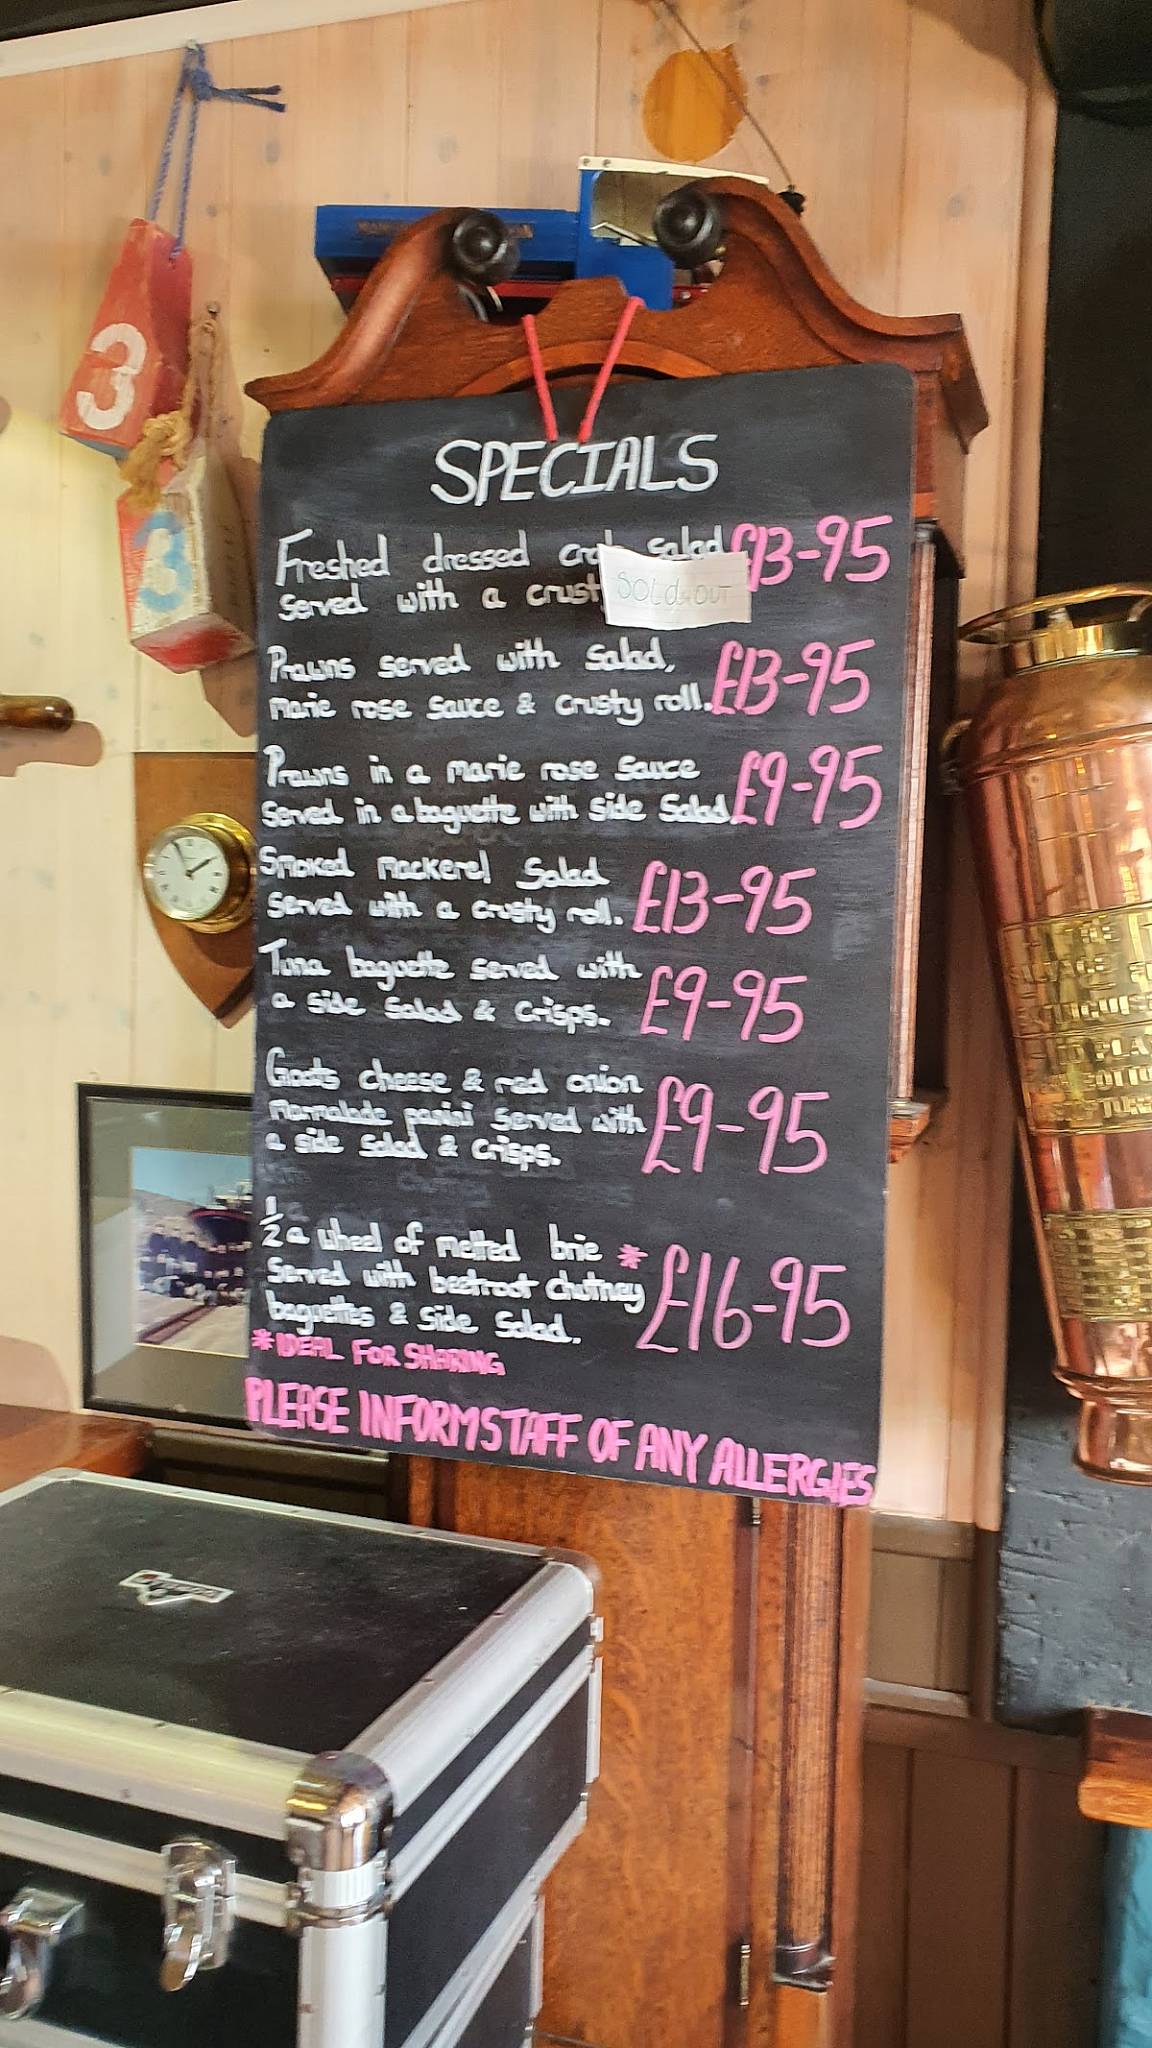 SPECIALS
Freshed dressed crab salad £13-95
Served with a crust
SOLD OUT
Prawns served with Salad,
Marie rose sauce & crusty roll. £13-95
Prawns in a marie rose sauce
Served in a baguette with side Salad. £9-95
Smoked mackerel Salad
Served with a crusty roll. £13-95
Tuna baguette served with
a side Salad & Crisps. £9-95
Goats cheese & red onion
Marmalade panini Served with
a side Salad & Crisps. £9-95
1/2 a wheel of melted brie *
Served with beetroot chutney
baguettes & side Salad. £16-95
*IDEAL FOR SHARING
PLEASE INFORM STAFF OF ANY ALLERGIES
3
3